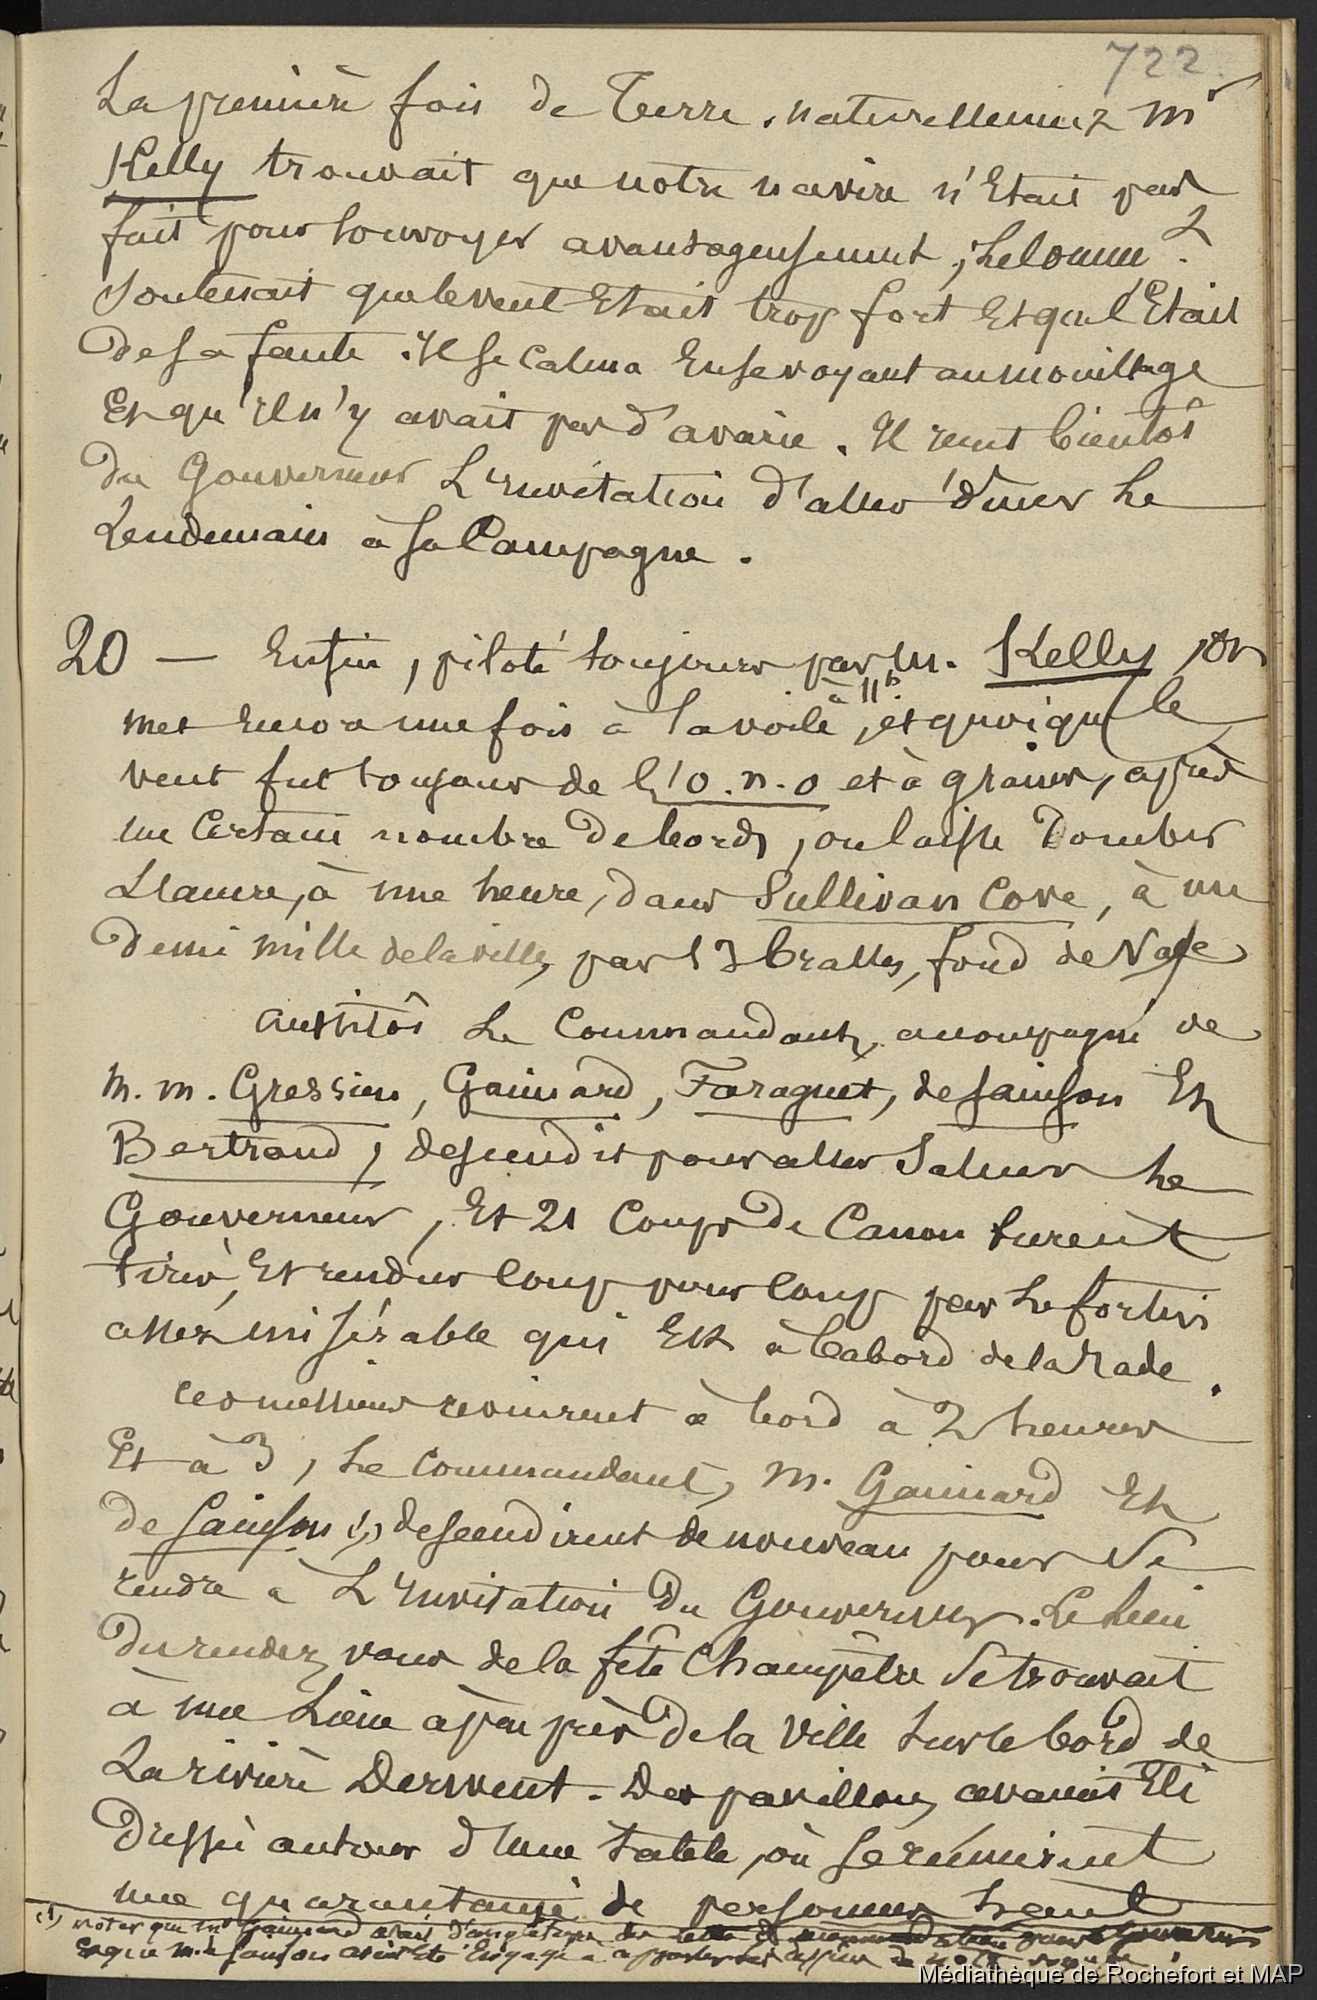 722
La première fois de Terre. naturellement Mr
Kelly trouvait que notre navire n'Etait pas
fait pour louvoyer avantageusement ; Le Comm.t
Soutenait que le vent Etait trop fort Et que c'Etait
de sa faute. Il se calma En se voyant au mouillage
Et qu'il n'y avait pas d'avarie. Il reçut bientôt
du Gouverneur L'invitation d'aller dîner Le
Lendemain à sa Campagne.
20 — Enfin, piloté toujours par M. Kelly, on
à 11h.
met encore une fois à la voile, et quoique le
vent fut toujours de l'O.N.O et à grains, après
un Certain nombre de bords, on laisse tomber
L'ancre, à une heure, dans Sullivan Cove, à un
demi mille de la ville, par 13 brasses, fond de Vase
aussitôt Le Commandant, accompagné de
M.M. Gressien, Gaimard, Faraguet, de Sainson Et
Bertrand, descendit pour aller Saluer Le
Gouverneur, Et 21 Coups de Canon furent
tirés, Et rendus Coup pour Coup par Le fortin
assez misérable qui Est à bâbord de la rade.
ces messieurs revinrent à bord à 2 heures
Et à 3, Le Commandant, M. Gaimard Et
de Sainson (1) descendirent de nouveau pour Se
rendre à L'Invitation du Gouverneur. Le Lieu
du rendez vous de la fête Champêtre Se trouvait
à une Lieue à peu près de la Ville sur le bord de
La rivière Derwent. Des pavillons avaient Eté
dressés autour d'une table, où se réunirent
une quarantaine de personnes tant
(1) noter que Mr Gaimard avait d'angleterre des lettres de recommandation pour le Gouverneur
Et que M. de Sainson avait été Engagé à apporter Les dessins de notre voyage !
Médiathèque de Rochefort et MAP